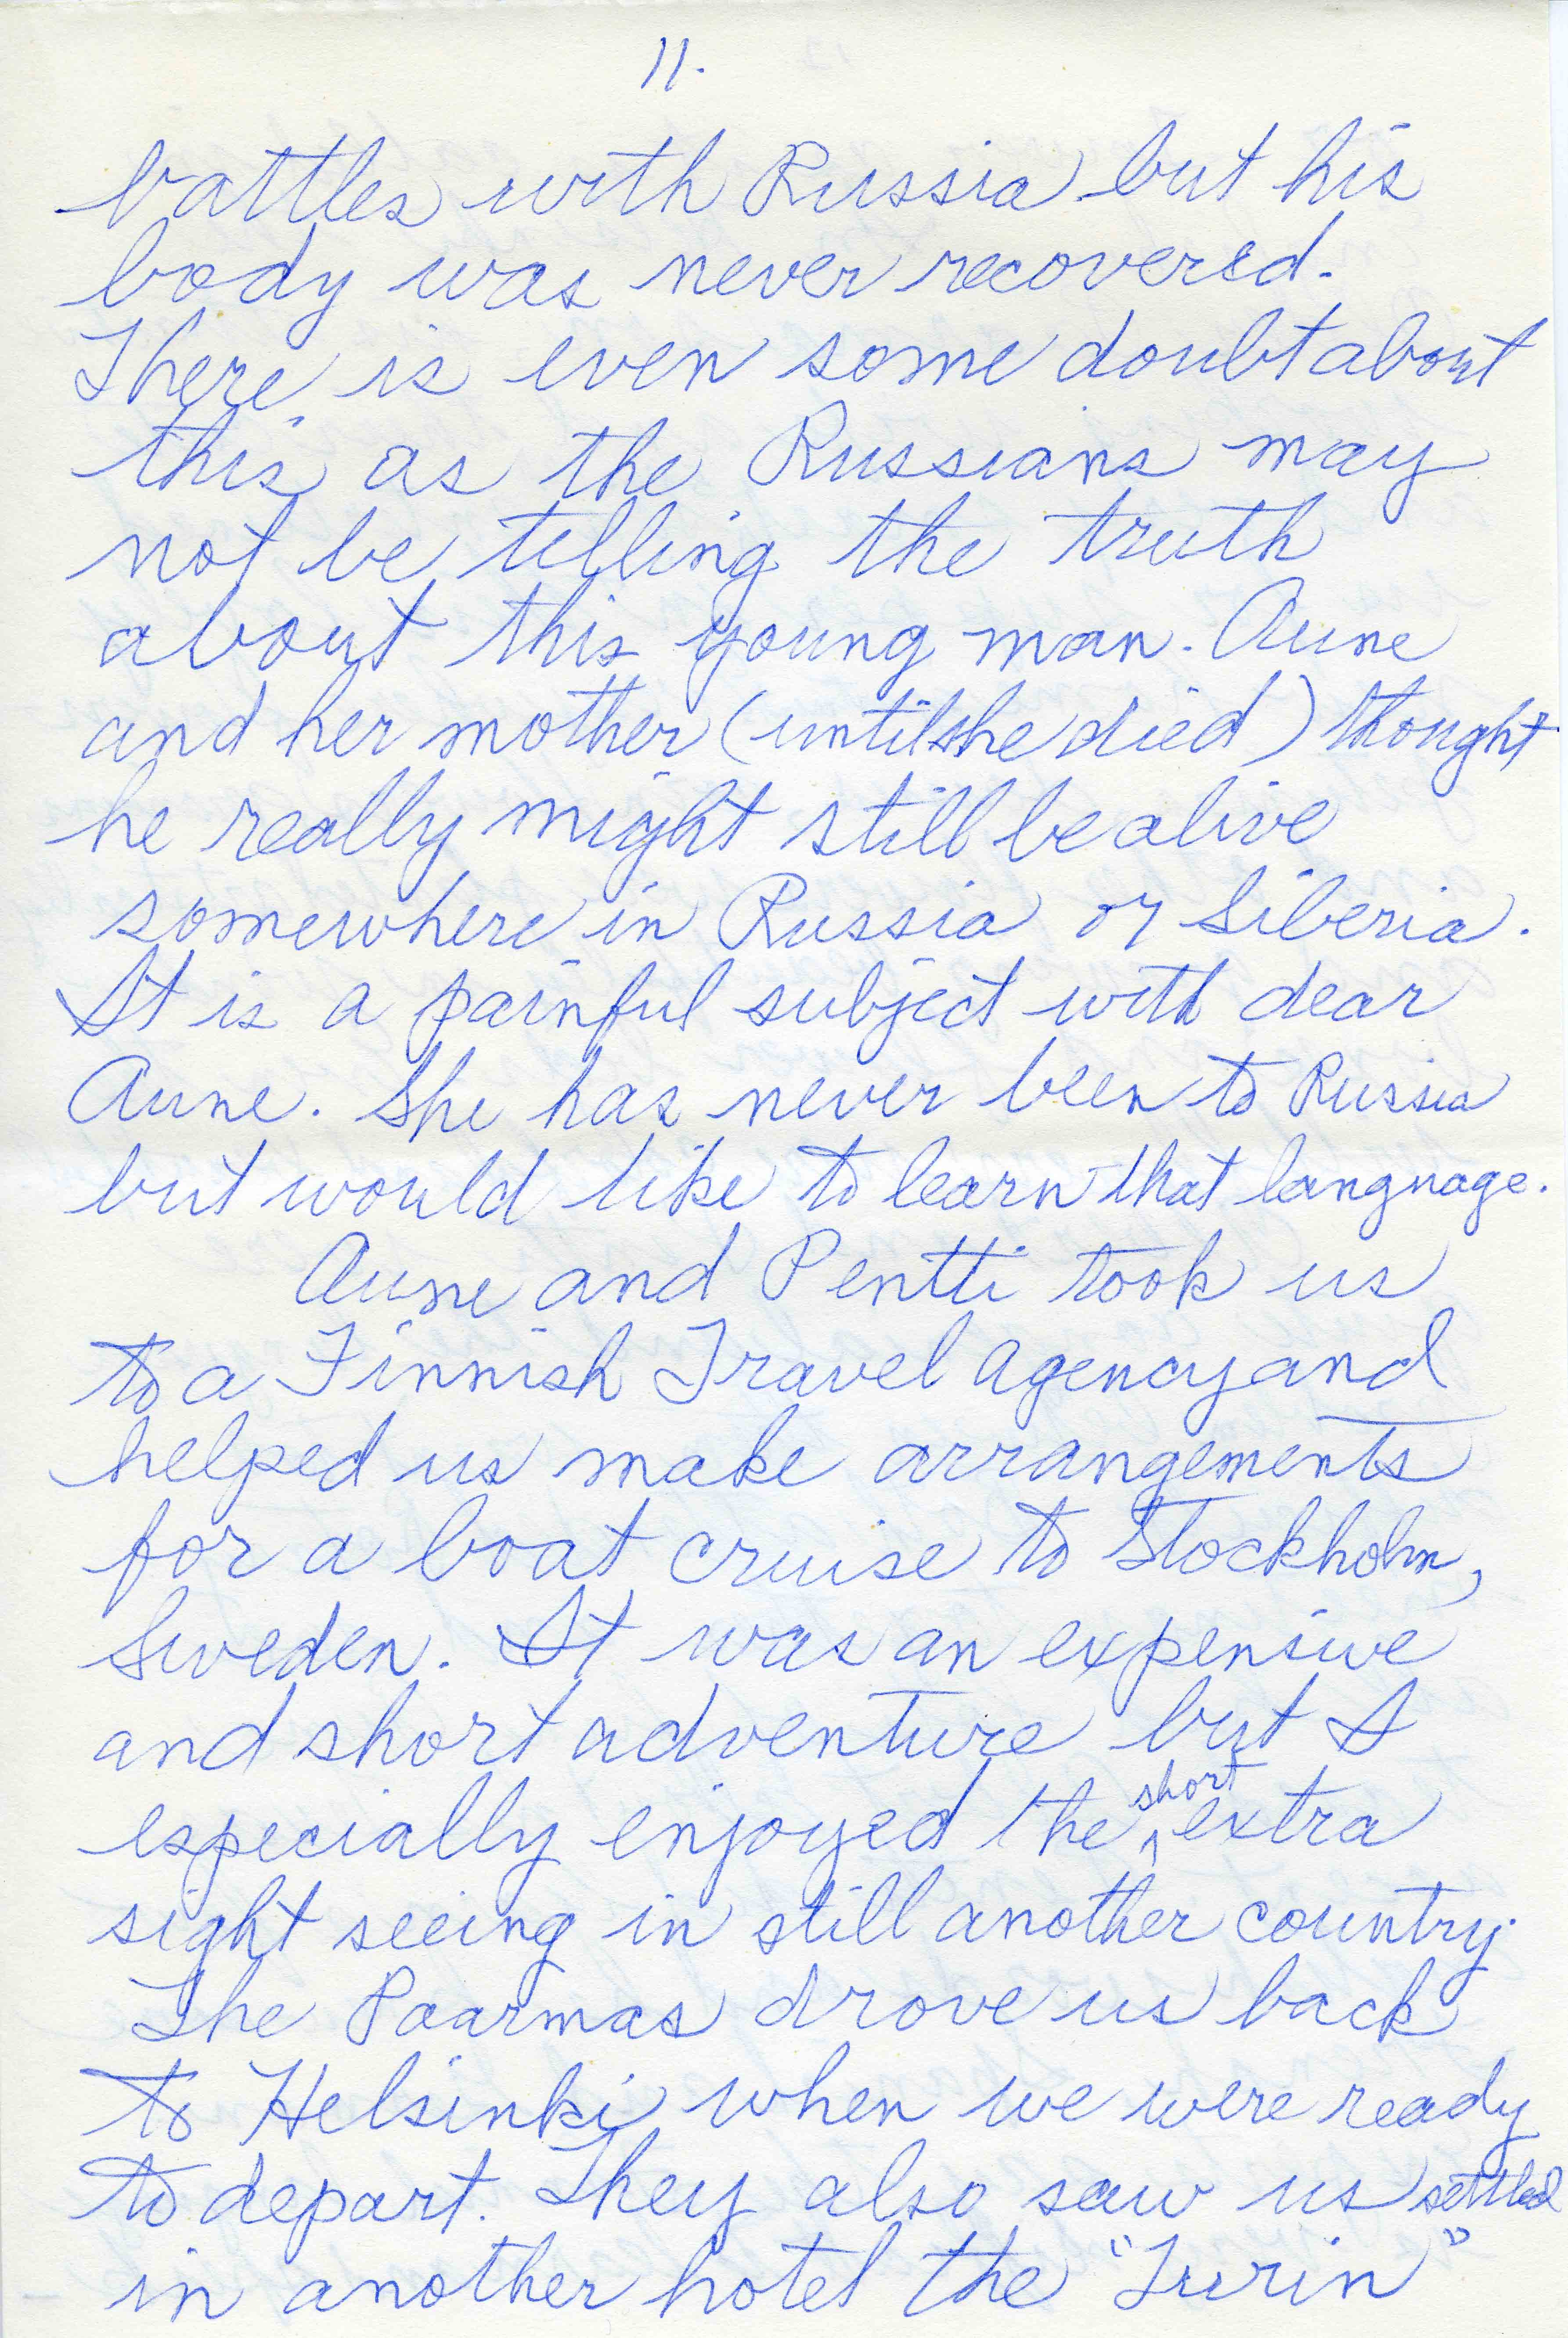 11.
battles with Russia but his
body was never recovered.
There is even some doubt about
this as the Russians may
not be telling the truth
about this young man. Aune
and her mother (until she died) thought
he really might still be alive
somewhere in Russia or Siberia.
It is a painful subject with dear
Aune. She has never been to Russia
but would like to learn that language.
Aune and Pentti took us
to a Finnish Travel Agency and
helped us make arrangements
for a boat cruise to Stockholm,
Sweden. It was an expensive
and short adventure but I
especially enjoyed the short extra
sight seeing in still another country.
The Paarmas drove us back
to Helsinki when we were ready
to depart. They also saw us settled
in another hotel the "Turin"